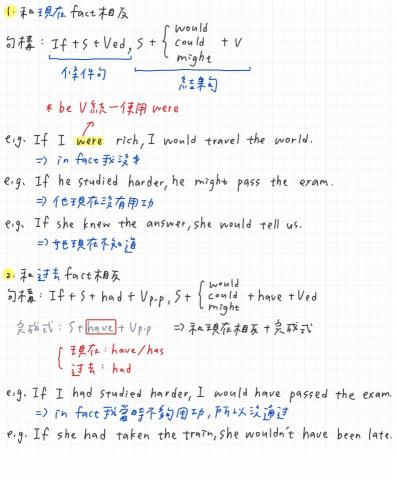 1. 和現在 fact 相反
句構: If + S + Ved, S + { would could might + V
條件句 結果句
* be V 統一使用 were
e.g. If I were rich, I would travel the world.
=> in fact 我沒
e.g. If he studied harder, he might pass the exam.
=> 他現在沒有用功
e.g. If she knew the answer, she would tell us.
=> 她現在不知道
2. 和過去 fact 相反
句構: If + S + had + Vp.p, S + { would could might + have + Ved
完成式: S + have + Vp.p => 和現在相反 + 完成式
{ 現在: have/has
過去: had
e.g. If I had studied harder, I would have passed the exam.
=> in fact 我當時不夠用功, 所以沒通過
e.g. If she had taken the train, she wouldn't have been late.